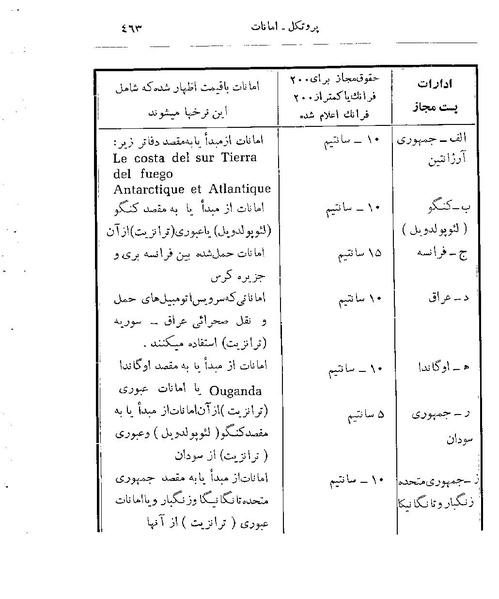 پروتکل ـ امانات ٤٦٣
ادارات
پست مجاز
حقوق مجاز برای ۲۰۰
فرانک یا کمتر از ۲۰۰
فرانک اعلام شده
امانات باقیمت اظهار شده که شامل
این نرخها میشوند
الف ـ جمهوری
آرژانتین
۱۰ ـ سانتیم
امانات از مبدأ یا به مقصد دفاتر زیر:
Le costa del sur Tierra
del fuego
Antarctique et Atlantique
ب ـ کنگو
( لئوپولدویل )
۱۰ ـ سانتیم
امانات از مبدأ یا به مقصد کنگو
(لئوپولدویل) یا عبوری (ترانزیت) از آن
ج ـ فرانسه
۱۵ سانتیم
امانات حمل شده بین فرانسه بری و
جزیره کرس
د ـ عراق
۱۰ ـ سانتیم
اماناتی که سرویس اتومبیل های حمل
و نقل صحرائی عراق ـ سوریه
(ترانزیت) استفاده میکنند .
ه ـ اوگاندا
۱۰ ـ سانتیم
امانات از مبدأ یا به مقصد اوگاندا
Ouganda یا امانات عبوری
(ترانزیت) از آن امانات از مبدأ یا به
ر ـ جمهوری
سودان
۵ سانتیم
مقصد کنگو ( لئوپولدویل ) و عبوری
( ترانزیت ) از سودان
ز ـ جمهوری متحده
زنگبار و تانگانیکا
۱۰ ـ سانتیم
امانات از مبدأ یا به مقصد جمهوری
متحده تانگانیگا و زنگبار و یا امانات
عبوری ( ترانزیت ) از آنها